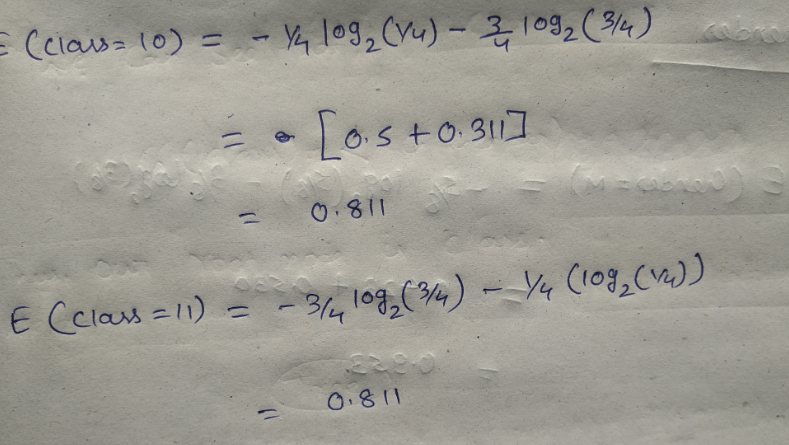 E (class = 10) = - 1/4 log₂(1/4) - 3/4 log₂(3/4)
= [0.5 + 0.311]
= 0.811
E (class = 11) = - 3/4 log₂(3/4) - 1/4 (log₂(1/4))
= 0.811